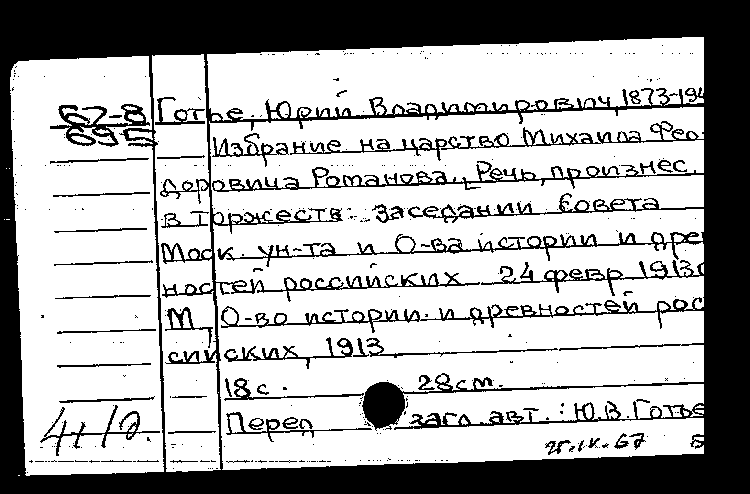 67-8 Готье, Юрий Владимирович, 1873-194
695 Избрание на царство Михаила Фео-
доровича Романова. [Речь, произнес.
в торжеств. заседании Совета
Моск. ун-та и О-ва истории и древ
ностей российских 24 февр 1913г
М., О-во истории и древностей рос
сийских, 1913.
18 с. 28 см.
Перед загл. авт.: Ю.В. Готье
25.IV.67